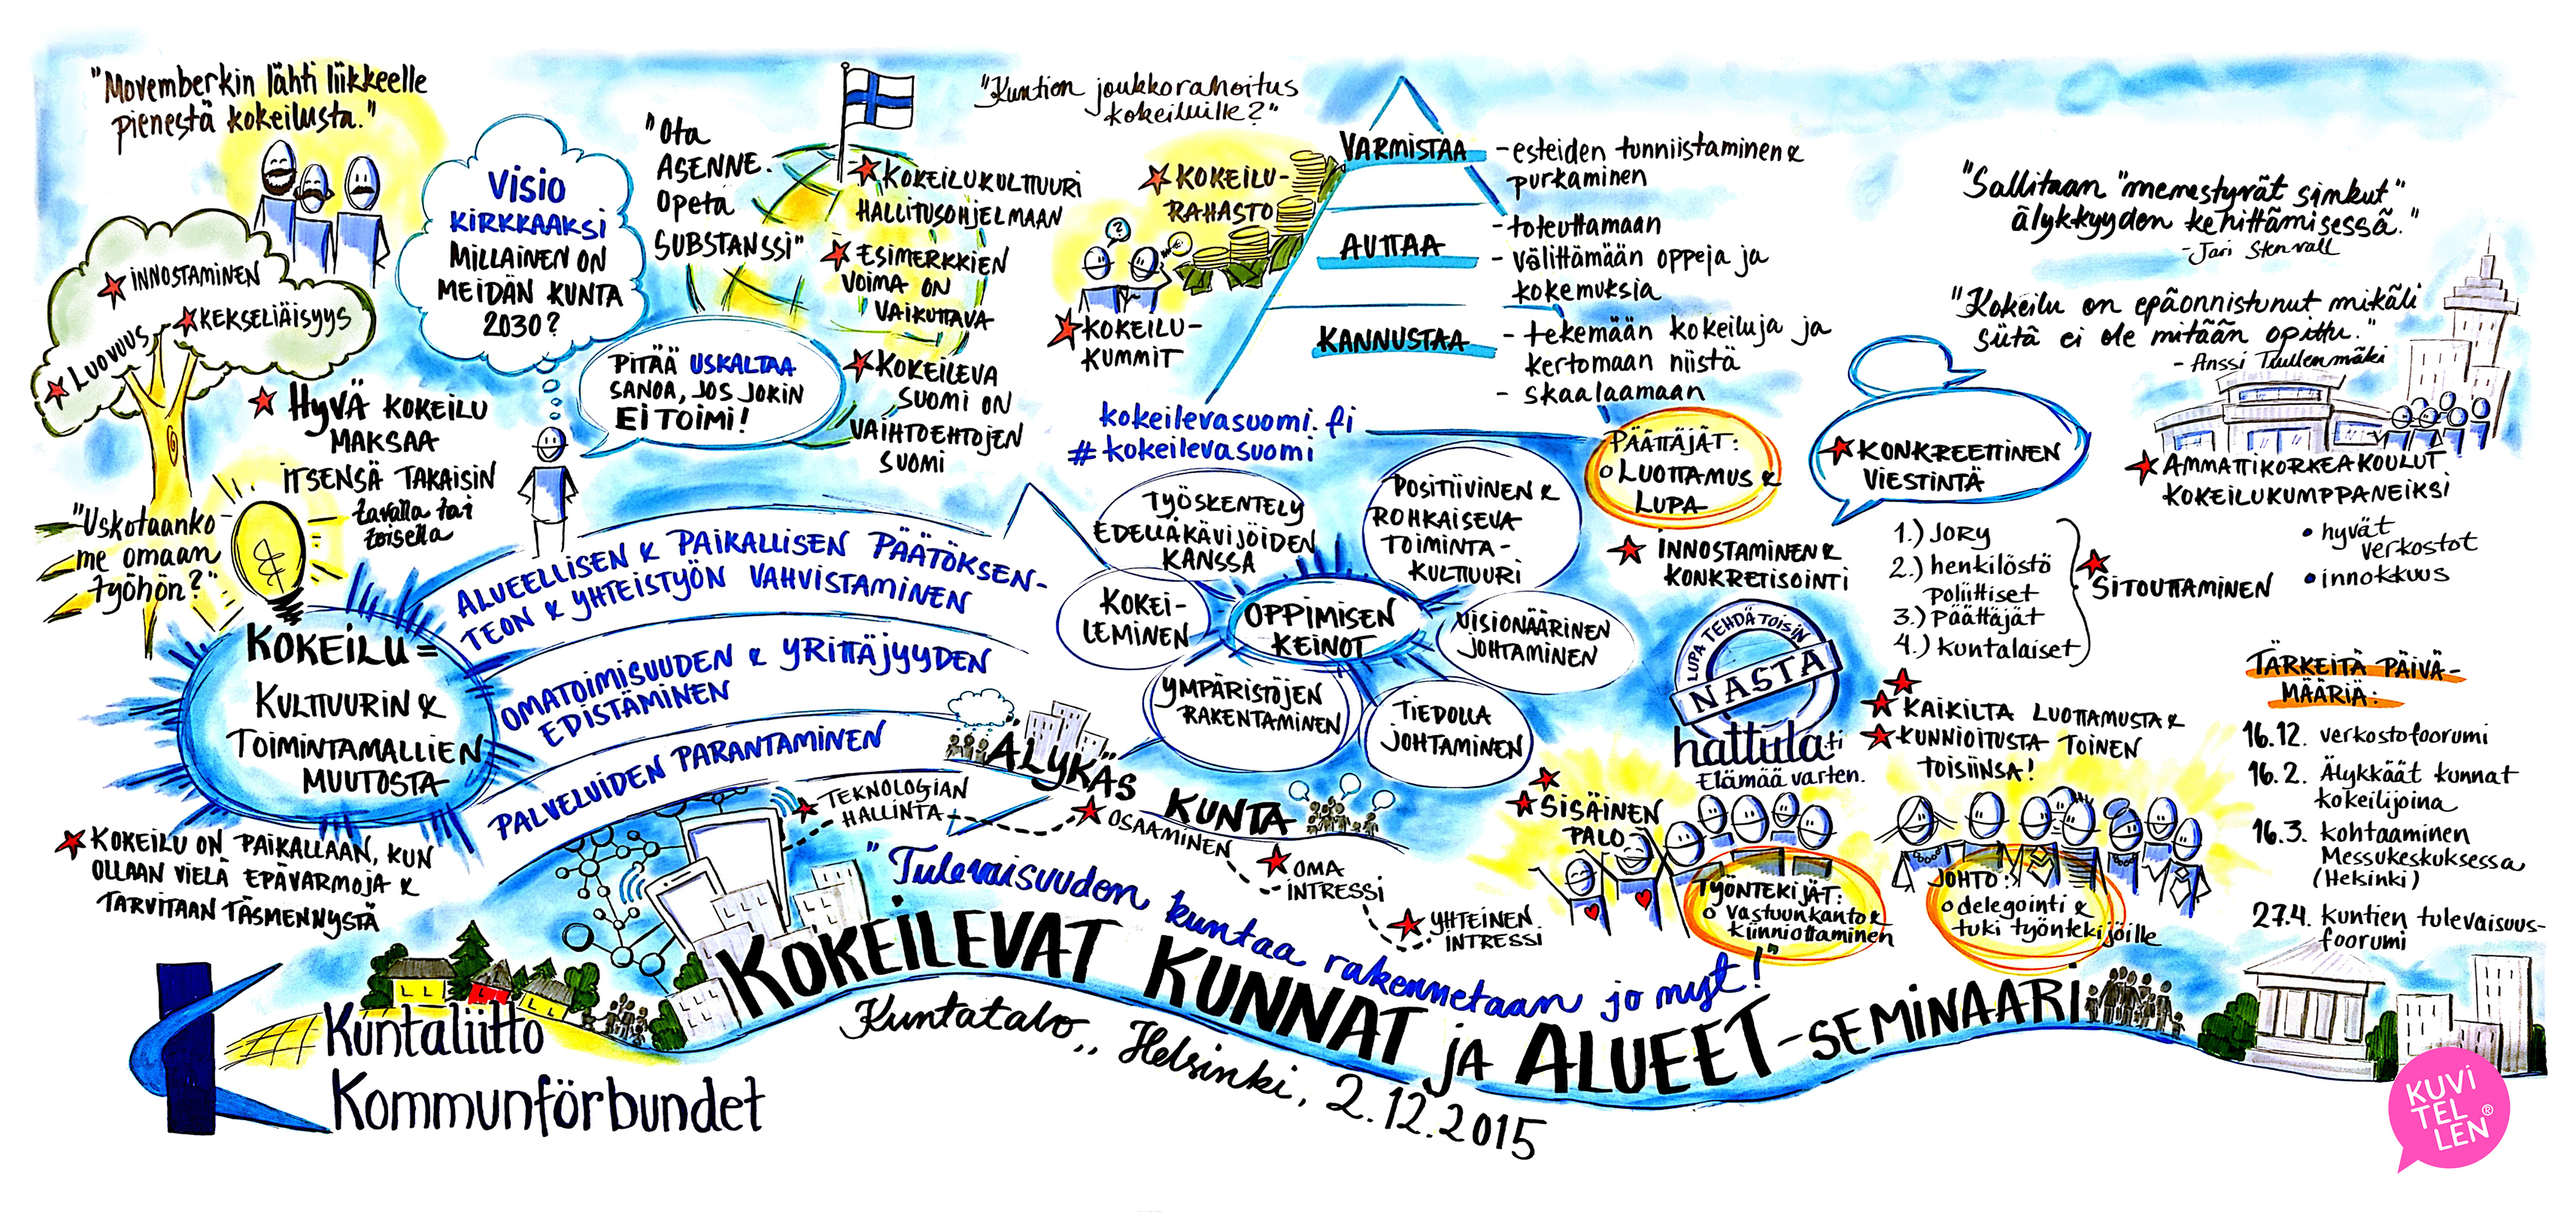 "Movemberkin lähti liikkeelle
pienestä kokeilusta."
★ INNOSTAMINEN
★ KEKSELIÄISYYS
★ LUOVUUS
VISIO
KIRKKAAKSI
MILLAINEN ON
MEIDÄN KUNTA
2030?
"Ota
ASENNE.
Opeta
SUBSTANSSI"
PITÄÄ USKALTAA
SANOA, JOS JOKIN
EI TOIMI!
★ KOKEILUKULTTUURI
HALLITUSOHJELMAAN
★ ESIMERKKIEN
VOIMA ON
VAIKUTTAVA
★ KOKEILEVA
SUOMI ON
VAIHTOEHTOJEN
SUOMI
★ HYVÄ KOKEILU
MAKSAA
ITSENSÄ TAKAISIN
tavalla tai
toisella
"Uskotaanko
me omaan
työhön?"
KOKEILU =
KULTTUURIN &
TOIMINTAMALLIEN
MUUTOSTA
★ KOKEILU ON PAIKALLAAN, KUN
OLLAAN VIELÄ EPÄVARMOJA &
TARVITAAN TÄSMENNYSTÄ
ALUEELLISEN & PAIKALLISEN PÄÄTÖKSEN-
TEON & YHTEISTYÖN VAHVISTAMINEN
OMATOIMISUUDEN & YRITTÄJYYDEN
EDISTÄMINEN
PALVELUIDEN PARANTAMINEN
"Kuntien joukkorahoitus
kokeiluille?"
★ KOKEILU-
RAHASTO
?
★ KOKEILU-
KUMMIT
VARMISTAA
- esteiden tunniistaminen &
purkaminen
AUTTAA
- toteuttamaan
- välittämään oppeja ja
kokemuksia
KANNUSTAA
- tekemään kokeiluja ja
kertomaan niistä
- skaalaamaan
kokeilevasuomi.fi
# kokeilevasuomi
OPPIMISEN
KEINOT
TYÖSKENTELY
EDELLÄKÄVIJÖIDEN
KANSSA
POSITIIVINEN &
ROHKAISEVA
TOIMINTA-
KULTTUURI
KOKEI-
LEMINEN
VISIONÄÄRINEN
JOHTAMINEN
YMPÄRISTÖJEN
RAKENTAMINEN
TIEDOLLA
JOHTAMINEN
ÄLYKÄS
KUNTA
★ TEKNOLOGIAN
HALLINTA
★ OSAAMINEN
★ OMA
INTRESSI
★ YHTEINEN
INTRESSI
PÄÄTTÄJÄT:
o LUOTTAMUS &
LUPA
★ INNOSTAMINEN &
KONKRETISOINTI
LUPA TEHDÄ TOISIN
NASTA
hattula.fi
Elämää varten.
★ SISÄINEN
★ PALO
TYÖNTEKIJÄT:
o vastuunkanto &
kunnioittaminen
★ KONKREETTINEN
VIESTINTÄ
1.) JORY
2.) henkilöstö
poliittiset
3.) päättäjät
4.) kuntalaiset
★ SITOUTTAMINEN
★
★ KAIKILTA LUOTTAMUSTA &
★ KUNNIOITUSTA TOINEN
TOISIINSA!
JOHTO:
o delegointi &
tuki työntekijöille
"Sallitaan "menestyvät sinkut"
älykkyyden kehittämisessä."
- Jari Stenvall
"Kokeilu on epäonnistunut mikäli
siitä ei ole mitään opittu."
- Anssi Tuulenmäki
★ AMMATTIKORKEAKOULUT
KOKEILUKUMPPANEIKSI
• hyvät
verkostot
• innokkuus
TÄRKEITÄ PÄIVÄ-
MÄÄRIÄ:
16.12. verkostofoorumi
16.2. Älykkäät kunnat
kokeilijoina
16.3. kohtaaminen
Messukeskuksessa
(Helsinki)
27.4. kuntien tulevaisuus-
foorumi
"Tulevaisuuden kuntaa rakennetaan jo nyt!"
KOKEILEVAT KUNNAT JA ALUEET-SEMINAARI
Kuntatalo,, Helsinki, 2.12.2015
Kuntaliitto
Kommunförbundet
KUVI
TEL
LEN®